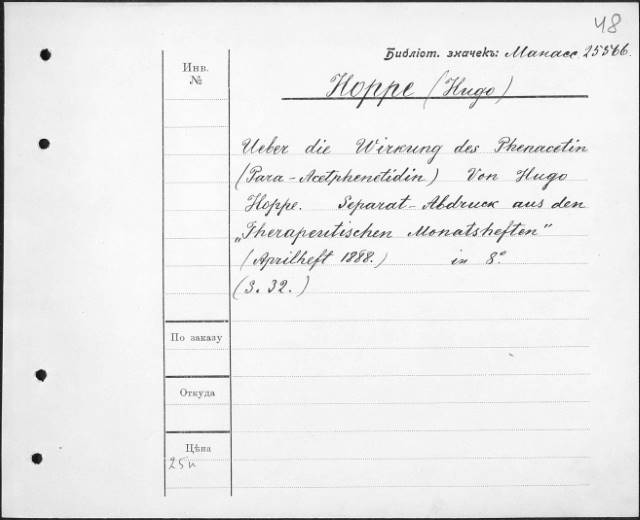 48
Библіот. значекъ: Манасс. 25566.
Инв.
№
Hoppe (Hugo)
Ueber die Wirkung des Phenacetin
(Para-Acetphenetidin) Von Hugo
Hoppe. Separat-Abdruck aus den
„Therapeutischen Monatsheften"
(Aprilheft 1888.) in 8°.
(S. 32.)
По заказу
Откуда
Цѣна
25к